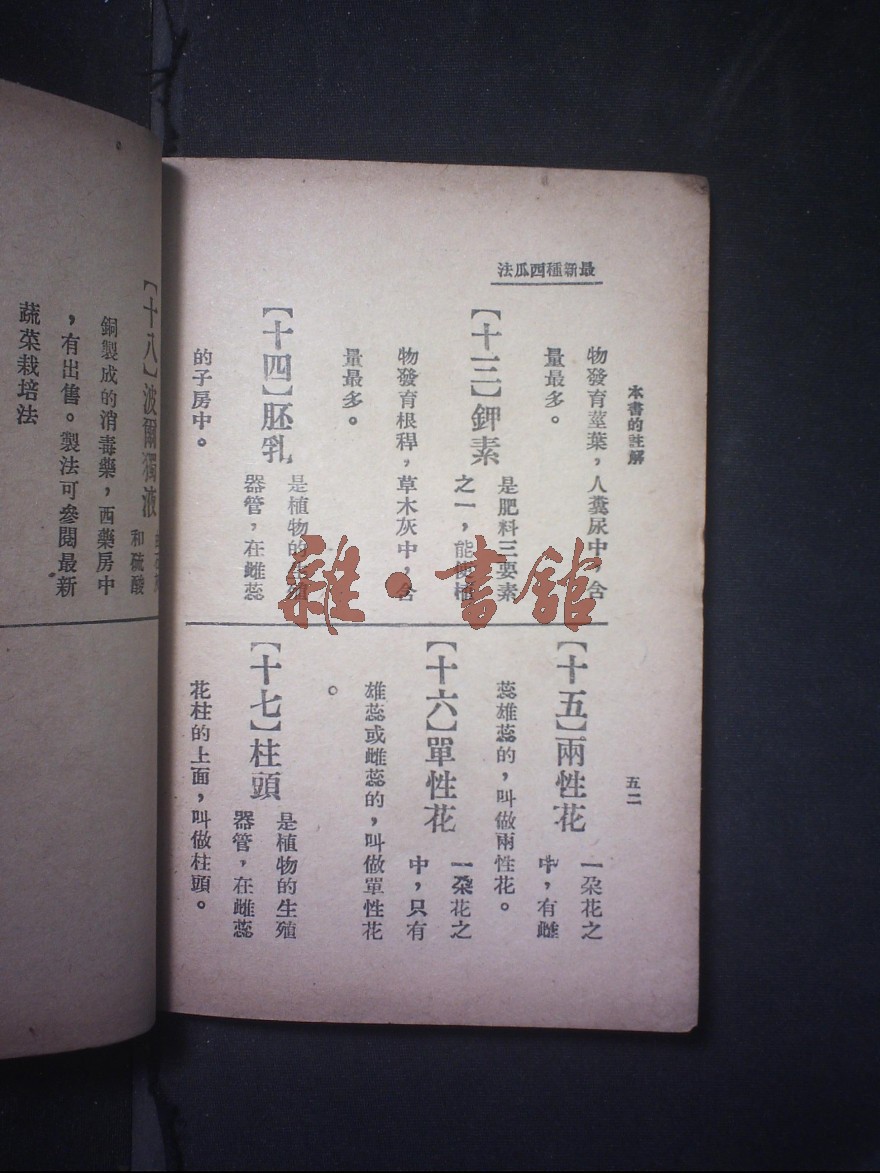 最新種西瓜法
本書的註解
五二
物發育莖葉，人糞尿中，含
量最多。
【十三】鉀素
是肥料三要素
之一，能使植
物發育根稈，草木灰中，含
量最多。
【十四】胚乳
是植物的生殖
器管，在雌蕊
的子房中。
【十五】兩性花
一朶花之
中，有雌
蕊雄蕊的，叫做兩性花。
【十六】單性花
一朶花之
中，只有
雄蕊或雌蕊的，叫做單性花
。
【十七】柱頭
是植物的生殖
器管，在雌蕊
花柱的上面，叫做柱頭。
【十八】波爾獨液
和硫酸
銅製成的消毒藥，西藥房中
，有出售。製法可參閱最新
蔬菜栽培法
雜·書館